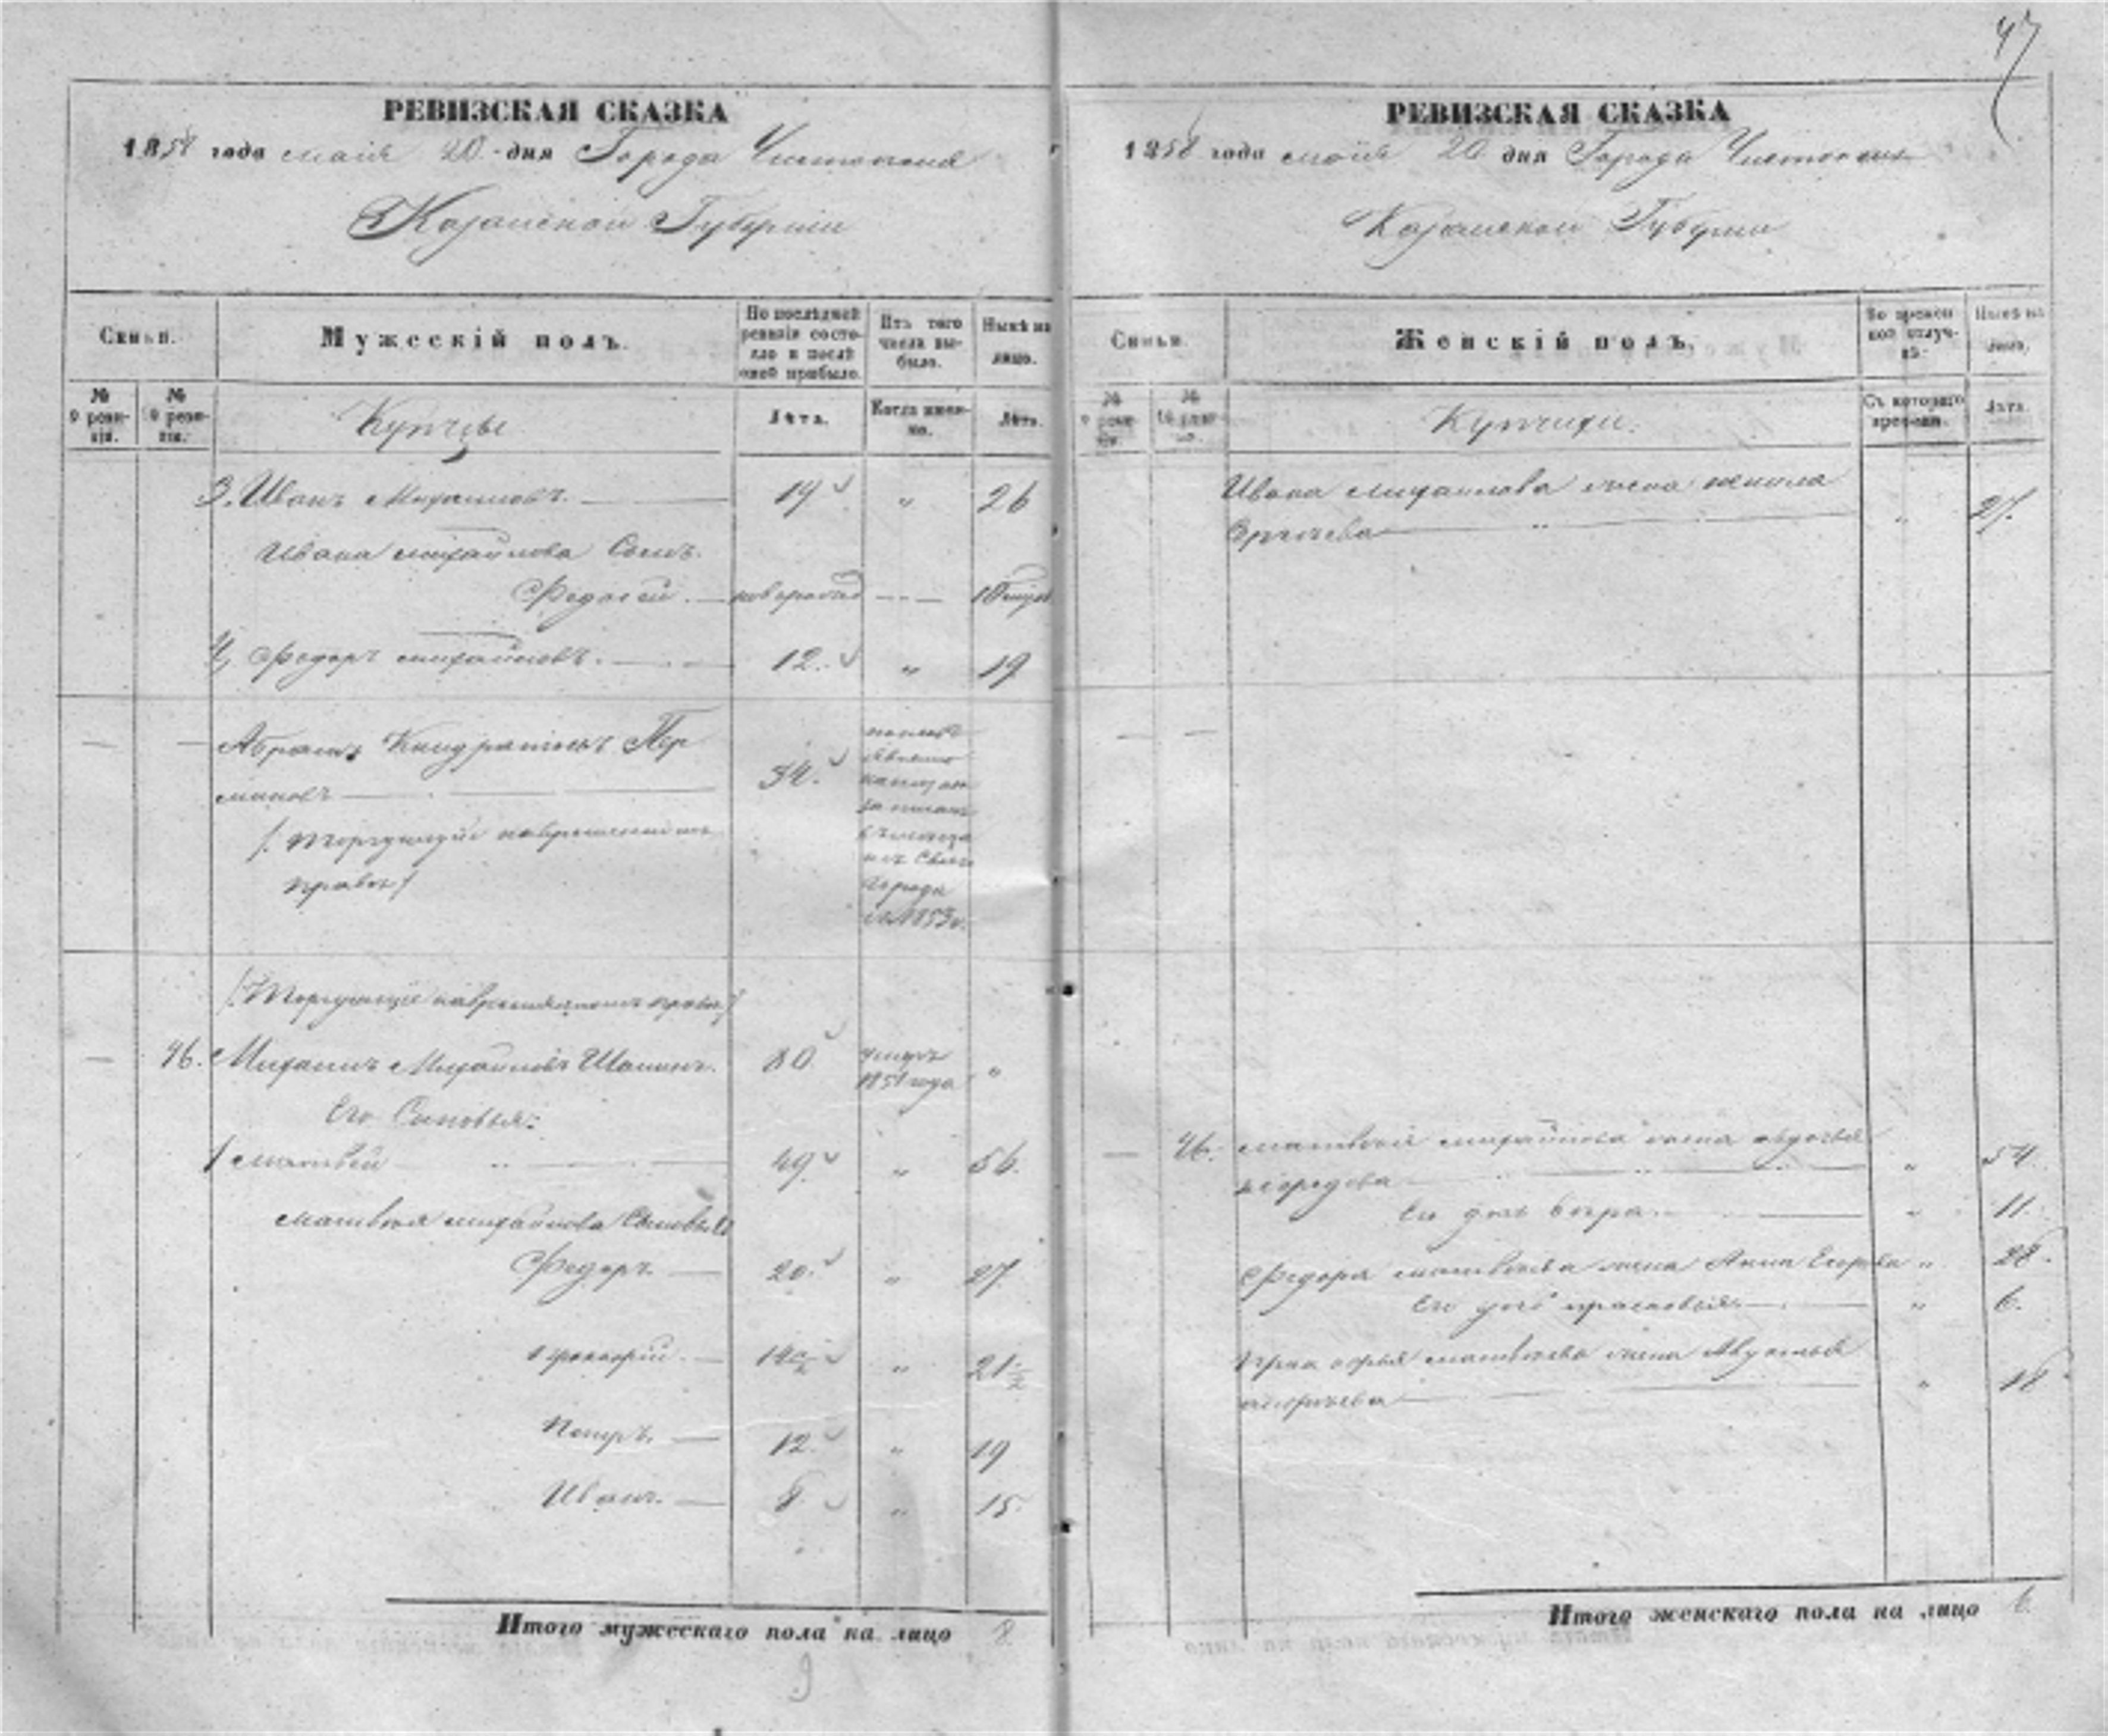 47
РЕВИЗСКАЯ СКАЗКА
1858 года маія 20 дня Города Чистополя
Казанской Губерніи
Семьи.
Мужескій полъ.
По последней ревизіи состояло и после оной прибыло.
Изъ того числа выбыло.
Ныне на лицо.
№ 9 ревизіи.
№ 10 ревизіи.
Купцы
Лета.
Когда именно.
Лета.
3. Иванъ Михайловъ. 19 " 26
Ивана михайлова Сынъ.
Федосей. новорожд
4, Федоръ михайловъ. 12. " 19
Абрамъ Кондратьевъ Пер
миновъ 34.
/. Торгующій
правъ /
города
съ 1853 г.
/Торгующіе правъ/
46. Михаилъ Михайловъ Шашинъ. 80 умеръ 1851 года "
Его Сыновья:
1 матвей 49 " 56.
матвея михайлова Сыновья
Федоръ. 20. " 27.
Прокофій. 14½ " 21½
Петръ. 12. " 19
Иванъ. 8. " 15.
Итого мужескаго пола на лицо 8
9
РЕВИЗСКАЯ СКАЗКА
1858 года маія 20 дня Города Чистополя
Казанской Губерніи
Семьи.
Женскій полъ.
Во временной отлучке.
Ныне на лицо.
№ 9 ревизіи.
№ 10 ревизіи.
Купчихи.
Съ котораго времени.
Лета.
Ивана михайлова жена
" 27.
46. матвея михайлова жена авдотья
" 54.
Его дочь вера. " 11.
Федора матвеева жена Анна Егорова " 28.
Его дочь прасковья. " 6.
Прокофья матвеева жена
" 18
Итого женскаго пола на лицо 6.